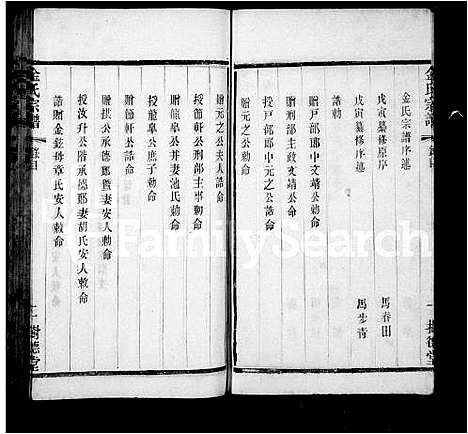 金氏宗譜序述
戊寅纂修原序 馬春田
戊寅纂修序述 馬步青
誥勅
贈刑部主政文靖公勅命
授戶部郎中元之公誥命
贈元之公
贈元之公夫人誥命
授節軒公刑部主事勅命
贈節軒公誥命
授龍皐公幷妻池氏勅命
贈龍皐公庶子勅命
贈拱所公承德郎曁妻安人敕命
授汝升公階承德郎妻胡氏安人敕命
誥贈金鉉母章氏安人敕命
金氏宗譜
樹德堂
FamilySearch